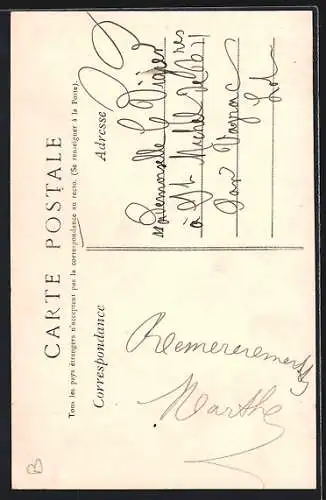 CARTE POSTALE
Tous les pays étrangers n'acceptent pas la correspondance au recto. (Se renseigner à la Poste).
Correspondance
Remerciements
Marthe
Adresse
Mademoiselle
à St Michel
par Vayrac
Lot
B